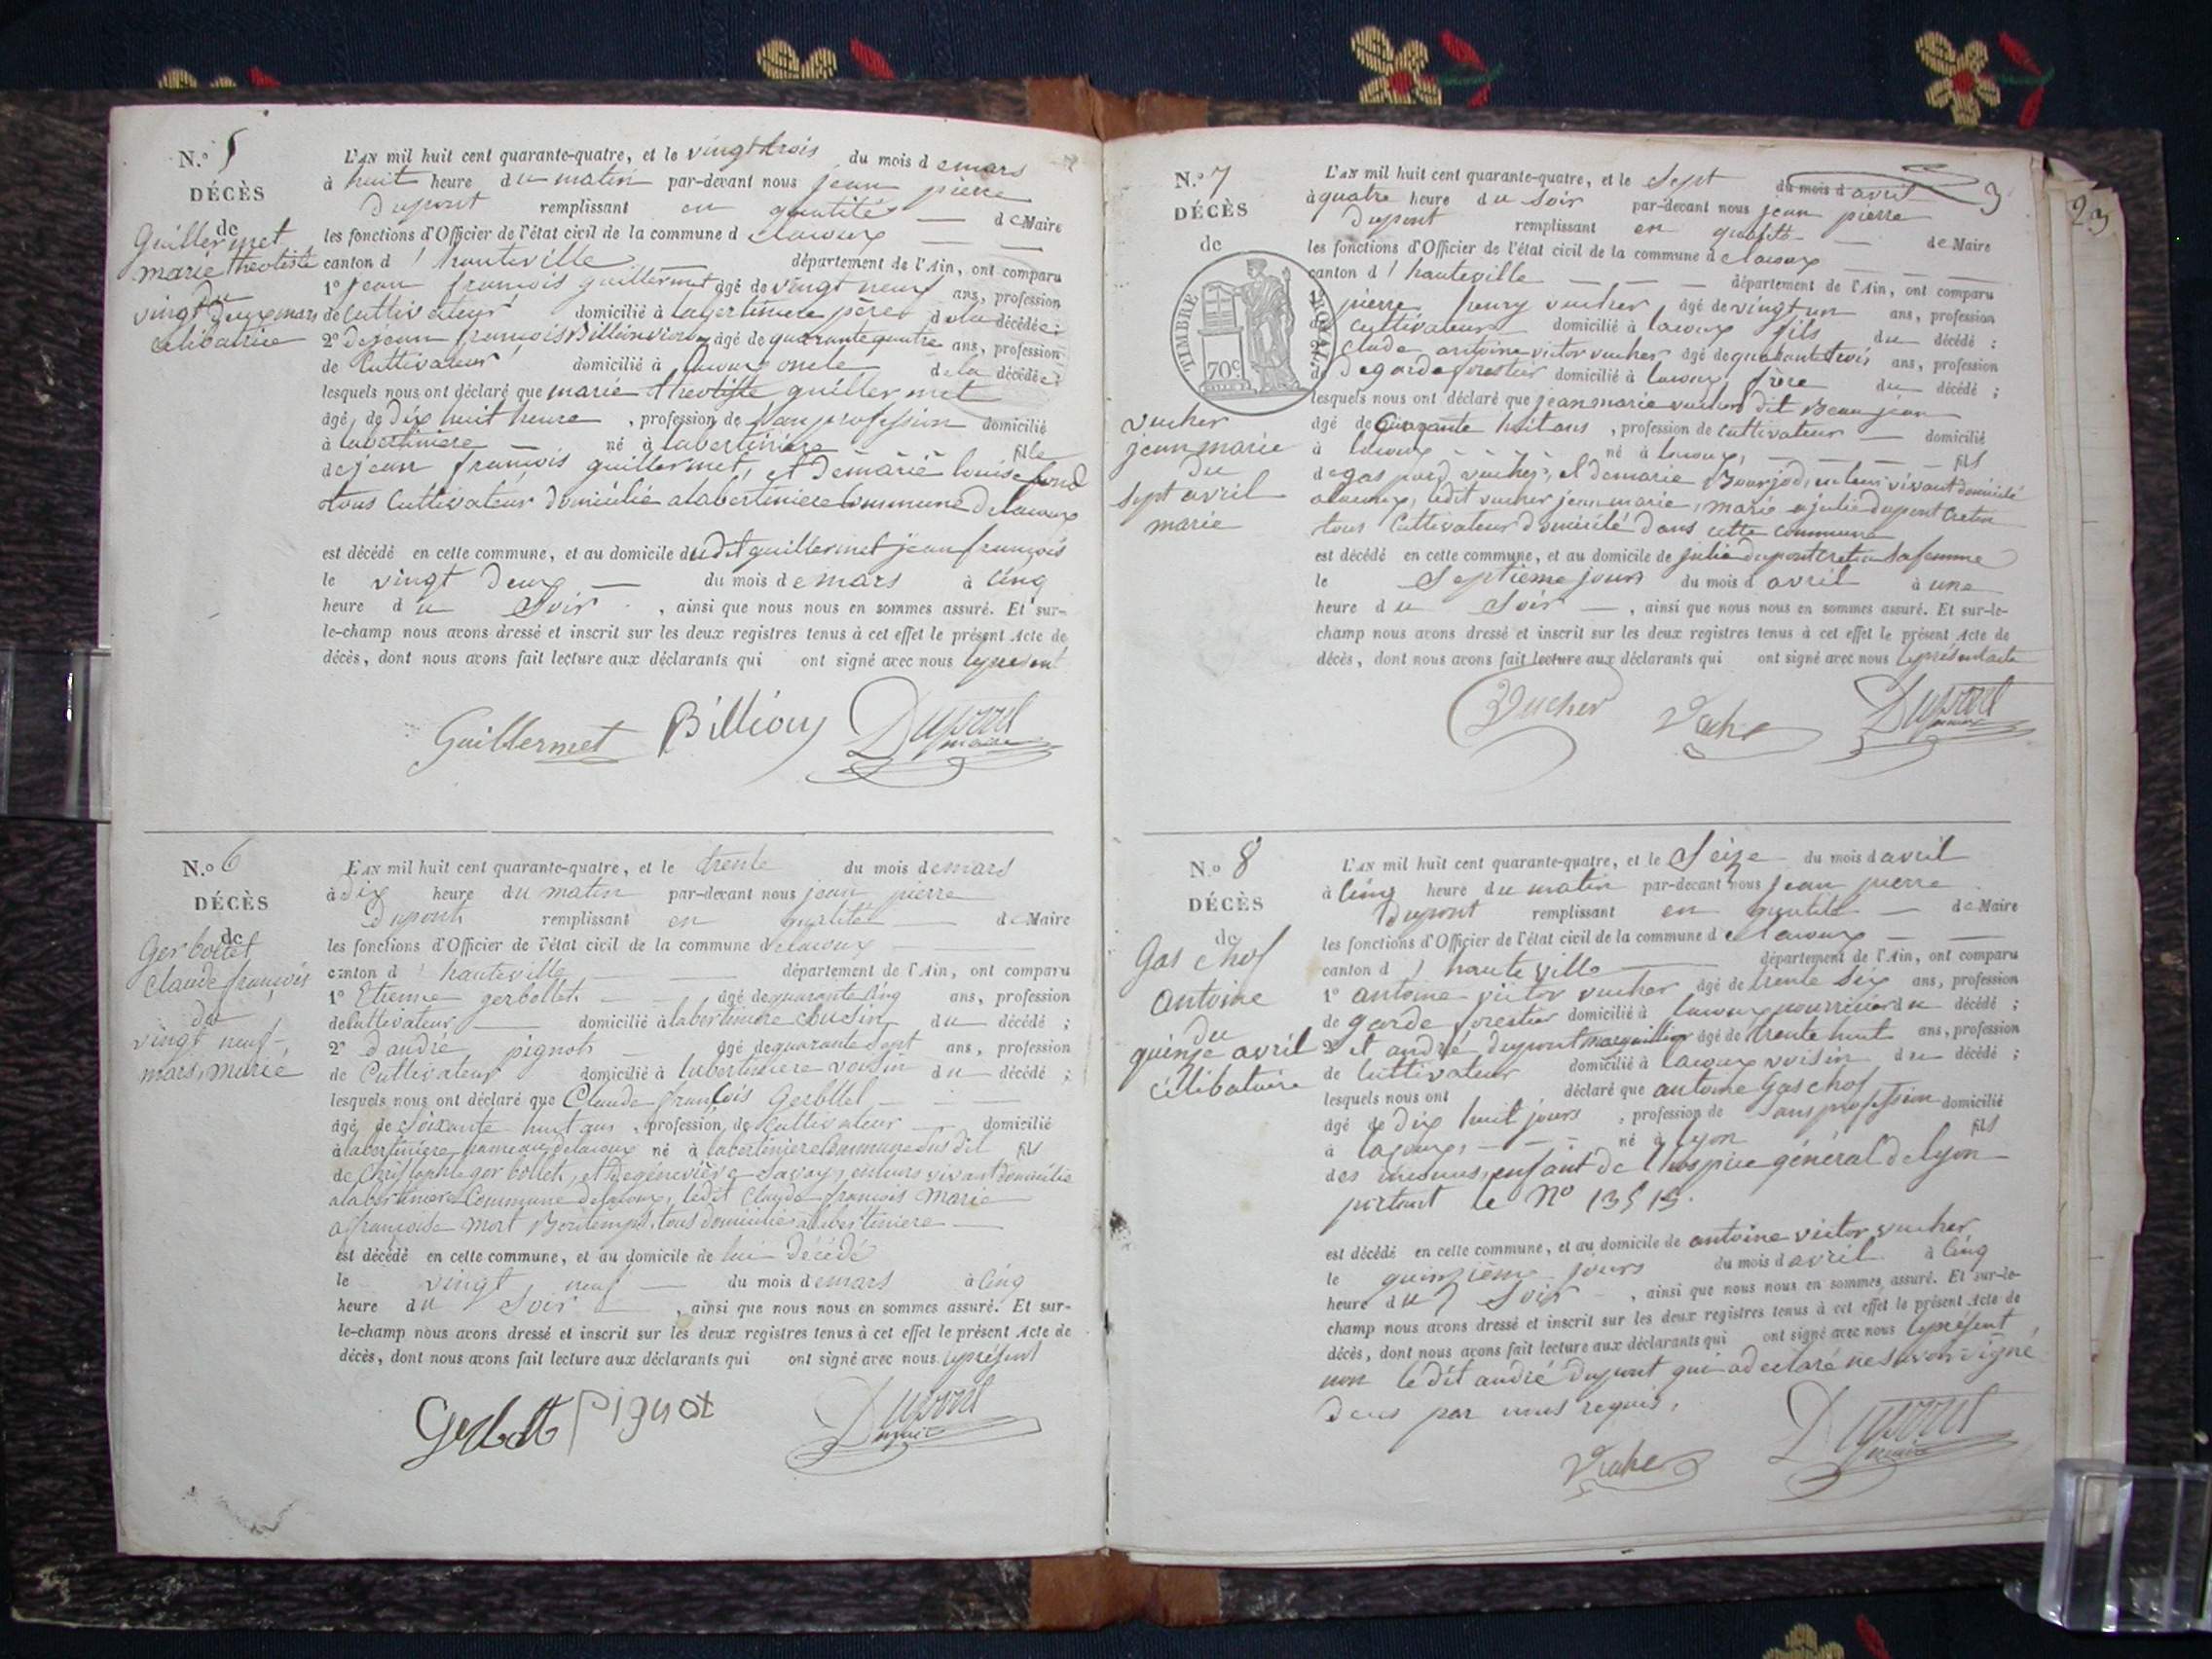 N.º 5
DÉCÈS
de
Guillermet
marie theotiste
du
vingt deux mars
célibatrice
L'AN mil huit cent quarante-quatre, et le vingt trois du mois d emars
à huit heure du matin par-devant nous jean pierre
Dupont remplissant en qualité de Maire
les fonctions d'Officier de l'état civil de la commune d elacoux
canton d'hauteville département de l'Ain, ont comparu
1º jean francois guillermet âgé de vingt neuf ans, profession
de cultivateur domicilié à labertiniere père de la décédée;
2º de jean francois Billion âgé de quarante quatre ans, profession
de Cultivateur domicilié à lacoux oncle de la décédée;
lesquels nous ont déclaré que marie theotiste guillermet
âgé de dix huit heure, profession de sans profession domicilié
à labertiniere né à labertiniere fille
de jean francois guillermet, et de marie louise fond
tous Cultivateur domicilié a labertiniere Commune de lacoux
est décédé en cette commune, et au domicile dudit guillermet jean francois
le vingt deux du mois de mars à cinq
heure du soir, ainsi que nous nous en sommes assuré. Et sur-
le-champ nous avons dressé et inscrit sur les deux registres tenus à cet effet le présent Acte de
décès, dont nous avons fait lecture aux déclarants qui ont signé avec nous le présent
Guillermet Billion Dupont maire
N.º 6
DÉCÈS
de
Gerbollet
Claude francois
du
vingt neuf
mars, marié
L'AN mil huit cent quarante-quatre, et le trente du mois de mars
à dix heure du matin par-devant nous jean pierre
Dupont remplissant en qualité de Maire
les fonctions d'Officier de l'état civil de la commune de lacoux
canton d'hauteville département de l'Ain, ont comparu
1º Etienne gerbollet âgé de quarante cinq ans, profession
de cultivateur domicilié à labertiniere cousin du décédé;
2º d'andré pignot âgé de quarante sept ans, profession
de Cultivateur domicilié à labertiniere voisin du décédé;
lesquels nous ont déclaré que Claude francois Gerbollet
âgé de soixante huit ans, profession de Cultivateur domicilié
à labertiniere hameau de lacoux né à labertiniere Commune susdit fils
de Christophe gerbollet, et de geneviève Savoy, en leurs vivant domicilié
a labertiniere Commune de lacoux, ledit Claude francois marié
a francoise mort Bontemps, tous domicilié a labertiniere
est décédé en cette commune, et au domicile de lui décédé
le vingt neuf du mois de mars à cinq
heure du soir, ainsi que nous nous en sommes assuré. Et sur-
le-champ nous avons dressé et inscrit sur les deux registres tenus à cet effet le présent Acte de
décès, dont nous avons fait lecture aux déclarants qui ont signé avec nous le présent
Gerbollet Pignot Dupont maire
3
23
N.º 7
DÉCÈS
de
TIMBRE ROYAL
70 c
vucher
jean marie
du
sept avril
marié
L'AN mil huit cent quarante-quatre, et le Sept du mois d avril
à quatre heure du soir par-devant nous jean pierre
Dupont remplissant en qualité de Maire
les fonctions d'Officier de l'état civil de la commune de lacoux
canton d'hauteville département de l'Ain, ont comparu
1º pierre henry vucher, âgé de vingt un ans, profession
de cultivateur domicilié à lacoux fils du décédé;
2º Claude antoine victor vucher âgé de quarante trois ans, profession
de garde forestier domicilié à lacoux, frère du décédé;
lesquels nous ont déclaré que jean marie vucher dit Beau jean
âgé de Cinquante huit ans, profession de cultivateur domicilié
à lacoux né à lacoux, fils
de gaspard vucher, et de marie Bourjod, en leur vivant domicilié
a lacoux, ledit vucher jean marie, marié a julie dupont Cretin
tous Cultivateur domicilé dans cette commune
est décédé en cette commune, et au domicile de julie dupont cretin sa femme
le Septième jours du mois d avril à une
heure du Soir, ainsi que nous nous en sommes assuré. Et sur-le-
champ nous avons dressé et inscrit sur les deux registres tenus à cet effet le présent Acte de
décès, dont nous avons fait lecture aux déclarants qui ont signé avec nous le présent acte
Vucher Vucher Dupont maire
N.º 8
DÉCÈS
de
Gas chof
antoine
du
quinze avril
célibataire
L'AN mil huit cent quarante-quatre, et le Seize du mois d avril
à Cinq heure du matin par-devant nous jean pierre
Dupont remplissant en qualité de Maire
les fonctions d'Officier de l'état civil de la commune de lacoux
canton d'hauteville département de l'Ain, ont comparu
1º antoine victor vucher âgé de trente six ans, profession
de garde forestier domicilié à lacoux nourricier du décédé;
2º et andré dupont marguillier âgé de trente huit ans, profession
de Cultivateur domicilié à lacoux voisin du décédé;
lesquels nous ont déclaré que antoine Gas chof
âgé de dix huit jours, profession de sans profession domicilié
à lacoux, né à lyon fils
des inconnus, enfant de l'hospice général de lyon
portant le Nº 13515.
est décédé en cette commune, et au domicile de antoine victor vucher
le quinzième jours du mois d avril à cinq
heure du Soir, ainsi que nous nous en sommes assuré. Et sur-le-
champ nous avons dressé et inscrit sur les deux registres tenus à cet effet le présent Acte de
décès, dont nous avons fait lecture aux déclarants qui ont signé avec nous le présent,
non le dit andré Dupont qui a déclaré ne savoir signé
de ce par nous requis,
Vucher Dupont maire